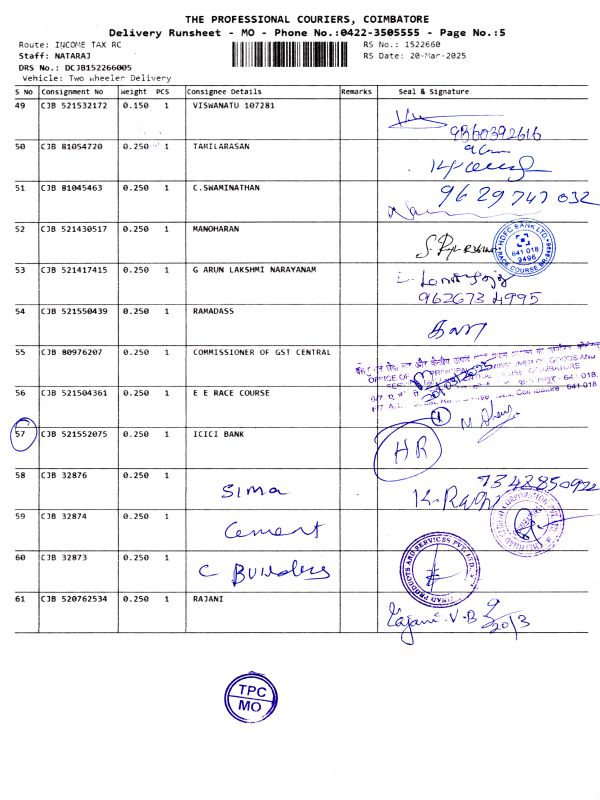 THE PROFESSIONAL COURIERS, COIMBATORE
Delivery Runsheet - MO - Phone No.:0422-3505555 - Page No.:5
Route: INCOME TAX RC RS No.: 1522660
Staff: NATARAJ RS Date: 20-Mar-2025
DRS No.: DCJB152266005
Vehicle: Two Wheeler Delivery
S No Consignment No Weight PCS Consignee Details Remarks Seal & Signature
49 CJB 521532172 0.150 1 VISWANATU 107281
9360392616
50 CJB 81054720 0.250 1 TAMILARASAN
51 CJB 81045463 0.250 1 C.SWAMINATHAN
9629747032
52 CJB 521430517 0.250 1 MANOHARAN
HDFC BANK LTD
641 018
9496
RACE COURSE
53 CJB 521417415 0.250 1 G ARUN LAKSHMI NARAYANAM
9626734995
54 CJB 521550439 0.250 1 RAMADASS
55 CJB 80976207 0.250 1 COMMISSIONER OF GST CENTRAL
OFFICE OF GOODS AND
COIMBATORE
641 018
56 CJB 521504361 0.250 1 E E RACE COURSE
Coimbatore - 641 018
1
57 CJB 521552075 0.250 1 ICICI BANK
HR
58 CJB 32876 0.250 1
Sima
7342850922
59 CJB 32874 0.250 1
Cement
60 CJB 32873 0.250 1
C Builders
PRODUCTS AND SERVICES PVT LTD
61 CJB 520762534 0.250 1 RAJANI
Rajani.V.B
20/3
TPC
MO